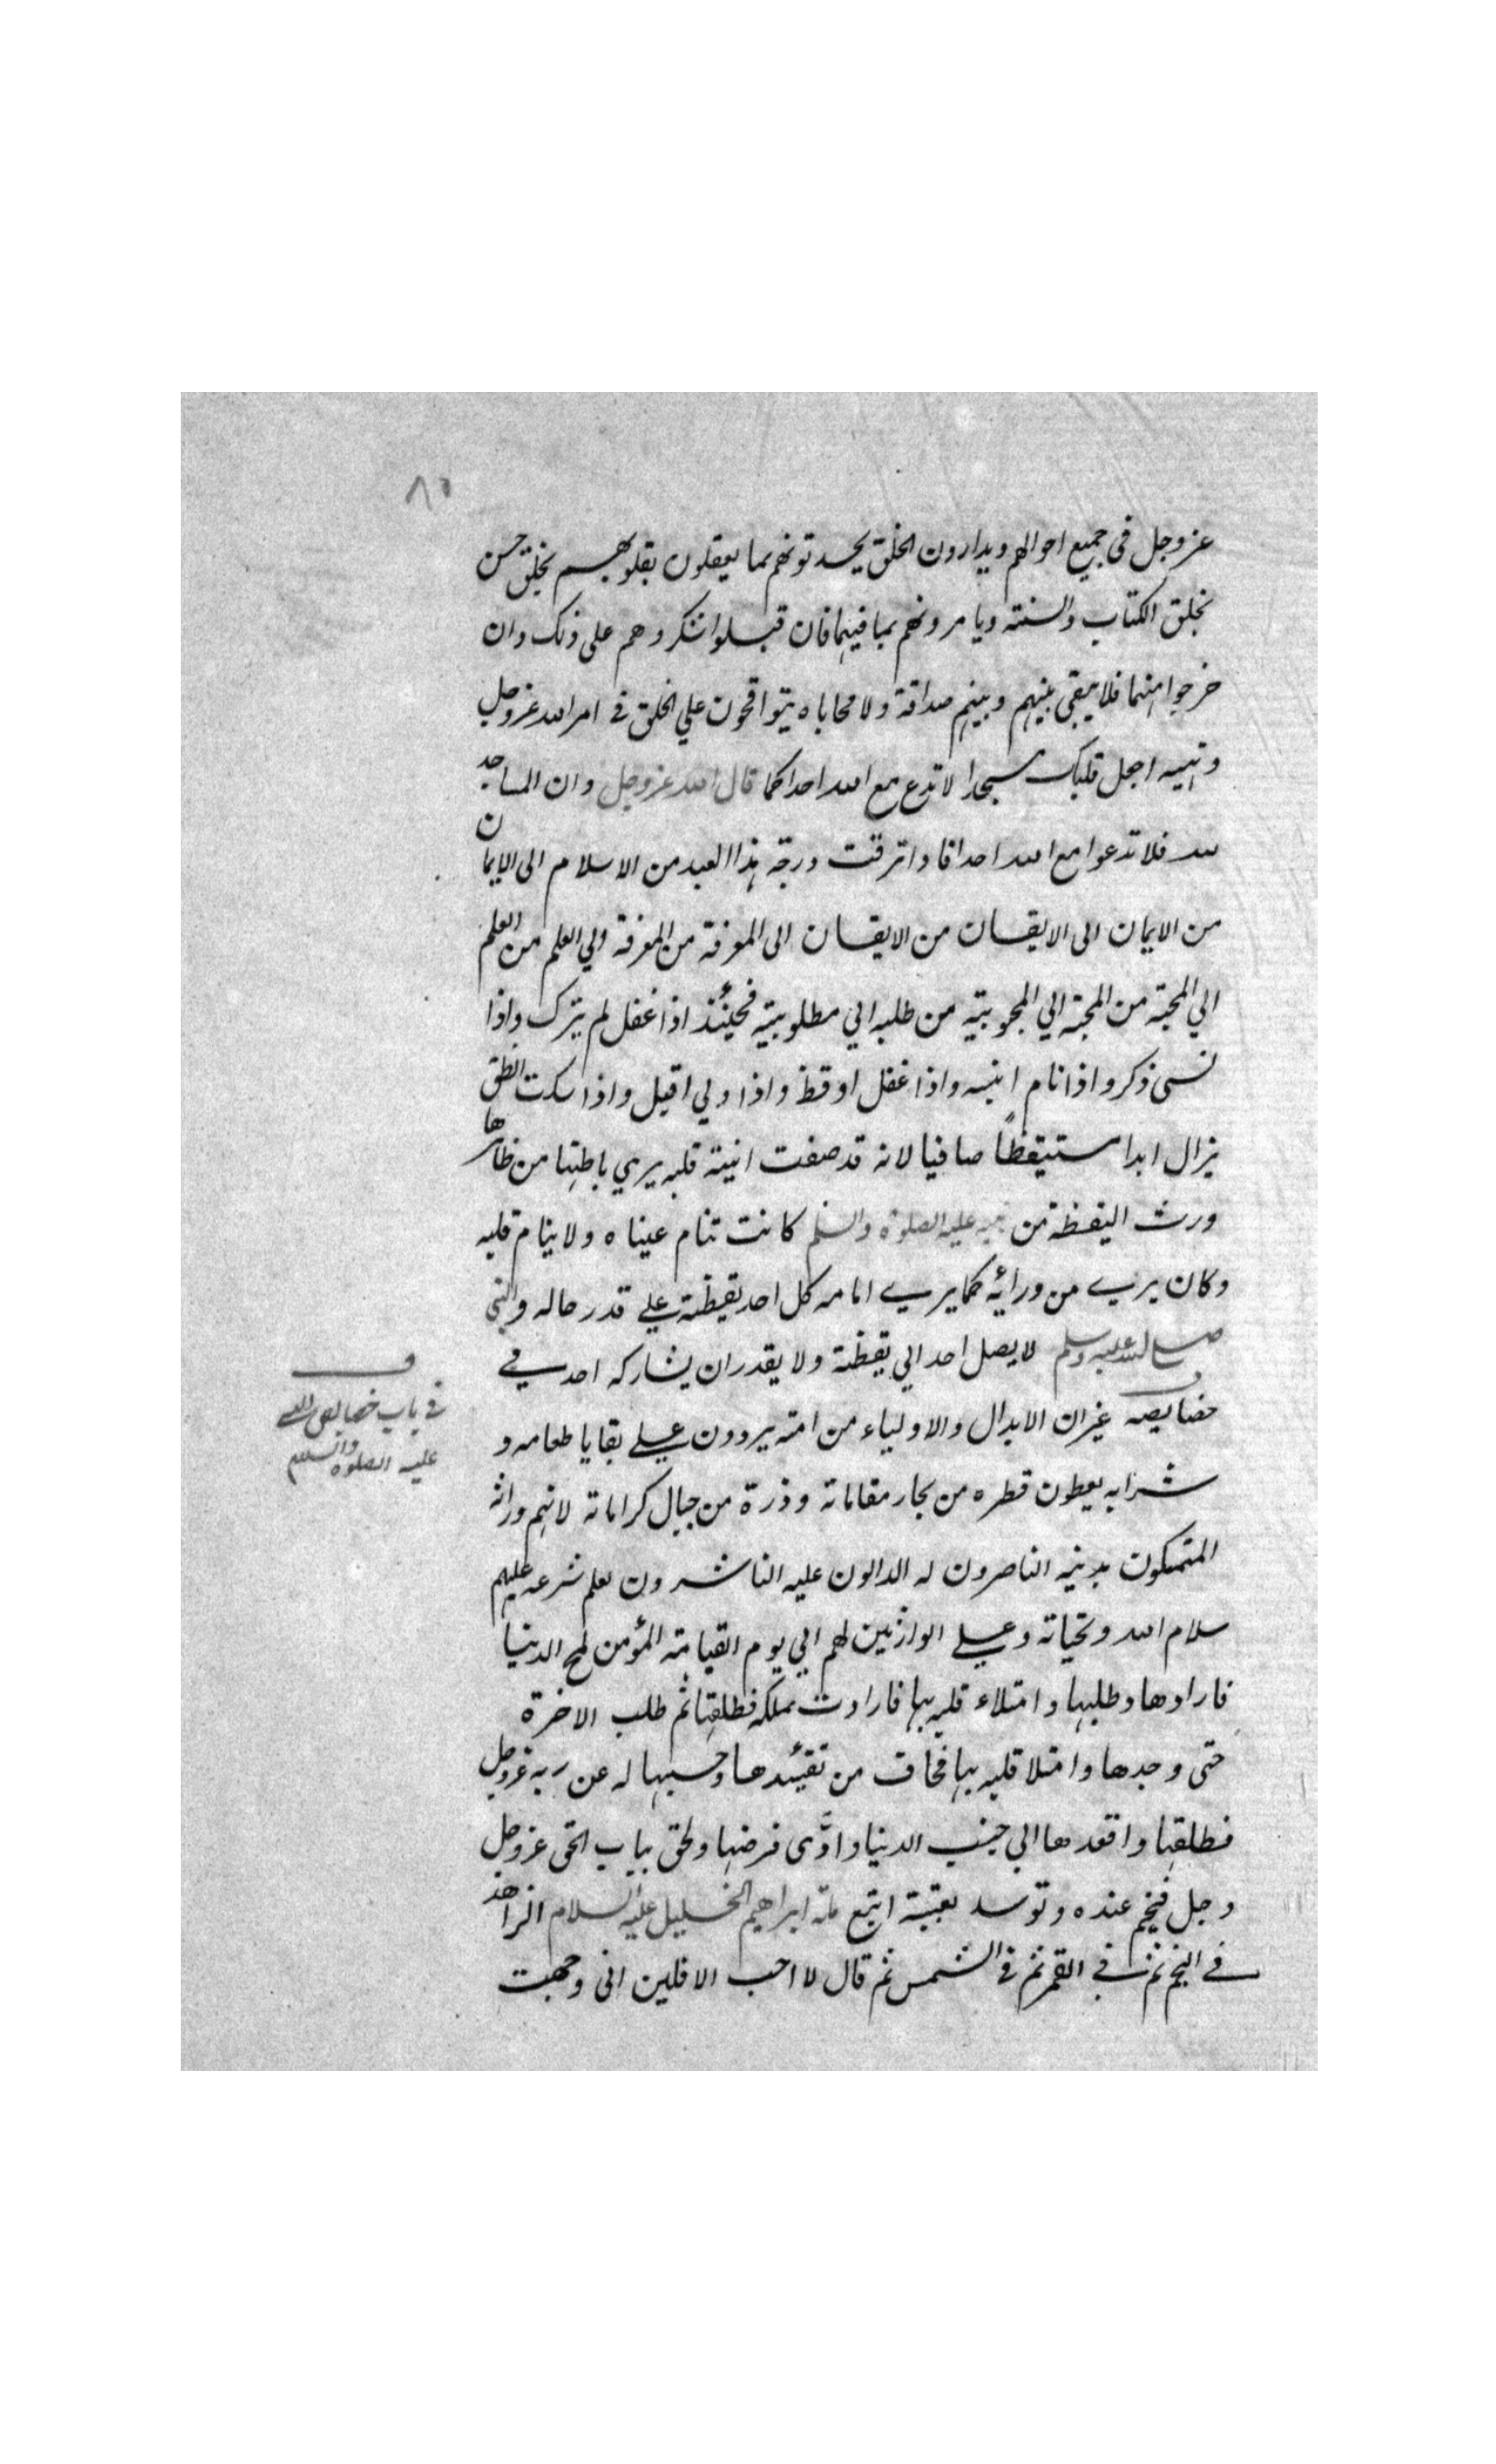 ٨٥
عز وجل فى جميع احوالهم ويدارون الخلق يحدثونهم بما يعقلون بقلوبهم بخلق حسن
بخلق الكتاب والسنته ويامرونهم بما فيهما فان قبلوا شكروهم على ذلك وان
خرجوا منهما فلا يبقى بينهم وبينهم صداقة ولا محاباه يتواقحون علي الخلق فى امر الله عزوجل
ونهيه اجعل قلبك مسجدا لا تدع مع الله احدا كما قال الله عزوجل وان المساجد
لله فلا تدعوا مع الله احدا فاذا ترقت درجة هذا العبد من الاسلام الى الايمان
من الايمان الى الايقان من الايقان الى المعرفة من المعرفة الي العلم من العلم
الي المحبة من المحبة الي المحبوبية من طلبه الي مطلوبيته فحينئذ اذا غفل لم يترك واذا
نسى ذكر واذا نام انبه واذا غفل اوقظ واذا ولي اقبل واذا سكت انطق
يزال ابدا مستيقظاً صافيا لانه قد صفت انية قلبه يري باطنها من ظاهرها
ورث اليقظة من نبيه عليه الصلوة والسلم كانت تنام عيناه ولا ينام قلبه
وكان يري من ورائه كما يري امامه كل احد يقظته علي قدر حاله والنبى
صلى الله عليه وسلم لا يصل احد الي يقظته ولا يقدر ان يشاركه احد في
خصايصه غيران الابدال والاولياء من امته يردون علي بقايا طعامه و
شرابه يعطون قطره من بحار مقاماته وذرة من جبال كراماته لانهم وراثه
المتمسكون بدينه الناصرون له الدالون عليه الناشرون لعلم شرعه عليهم
سلام الله وتحياته وعلي الوارثين لهم الي يوم القيامة المؤمن لمح الدنيا
فارادها وطلبها وامتلاء قلبه بها فارادت تملكه فطلقها ثم طلب الاخرة
حتى وجدها وامتلا قلبه بها فخاف من تقيئدها وحبسها له عن ربه عزوجل
فطلقها واقعدها الي جنب الدنيا وادَّى فرضها ولحق بباب الحق عزوجل
وجل فخيم عنده وتوسد بعتبته اتبع ملة ابراهيم الخليل عليه السلام الزاهد
في النجم ثم في القمر ثم فى الشمس ثم قال لا احب الافلين انى وجهت
ف
فى باب خصايص النبى
عليه الصلوه والسلام